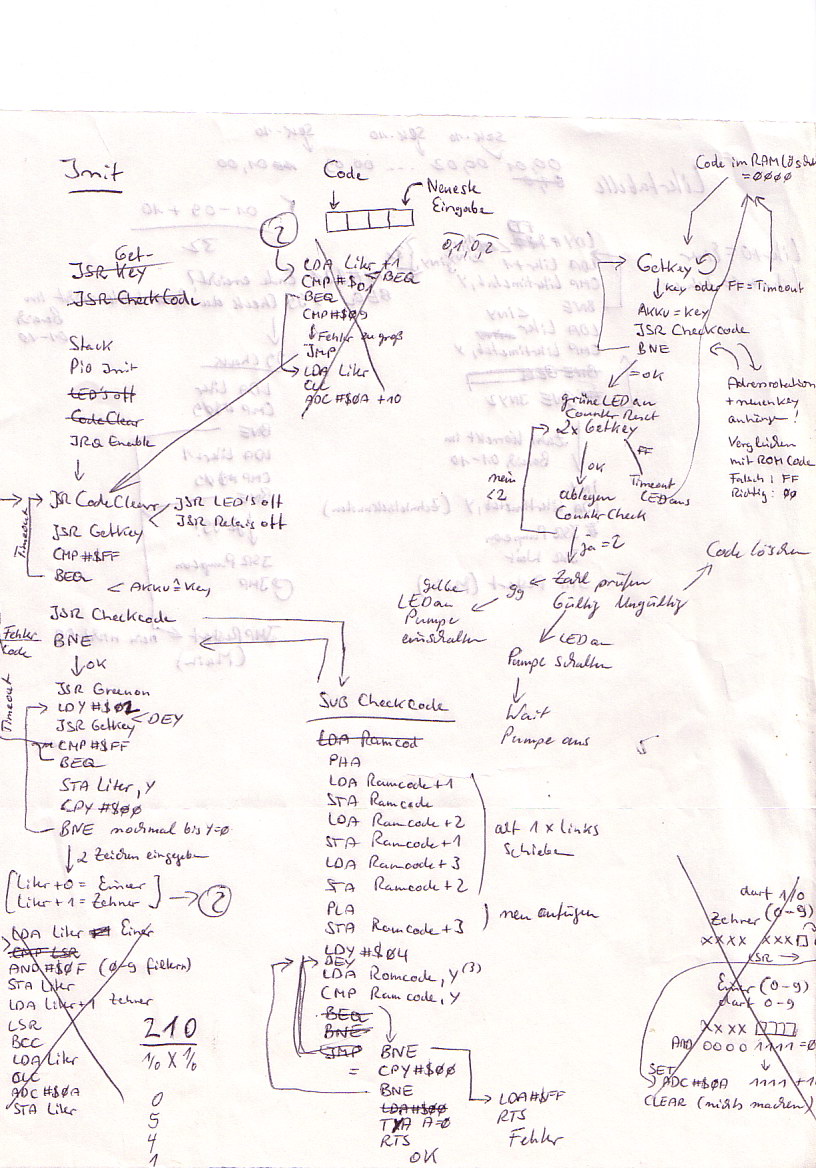 Init
Get-
JSR Key
JSR CheckCode
Stack
Pio Init
LED's off
CodeClear
IRQ Enable
JSR CodeClear
JSR LED's off
JSR Relais off
JSR Getkey
CMP #$FF
BEQ
Timeout
< AKKU ≙ Key
JSR Checkcode
BNE
Fehler
Code
↓ OK
JSR Greenon
LDY #$02
JSR Getkey < DEY
CMP #$FF
BEQ
Timeout
STA Liter, Y
CPY #$00
BNE nochmal bis Y=0
↓ 2 Zeichen eingegeben
Liter+0 = Einer
Liter+1 = Zehner
→ 2
LDA Liter Einer
CMP LSR
AND #$0F (0-9 filtern)
STA Liter
LDA Liter+1 Zehner
LSR
BCC
LDA Liter
CLC
ADC #$0A
STA Liter
210
1/0 X 1/0
0
5
4
1
Code
Neueste
Eingabe
0,1,0,2
2
LDA Liter +1
CMP #$01 BEQ
BEQ
CMP #$09
↓ Fehler zu groß
JMP
LDA Liter
CLC
ADC #$0A +10
SUB Checkcode
LDA Ramcod
PHA
LDA Ramcode +1
STA Ramcode
LDA Ramcode +2
STA Ramcode +1
LDA Ramcode +3
STA Ramcode +2
alt 1 x links
schieben
PLA
STA Ramcode +3
neu anfügen
LDY #$04
DEY
LDA Romcode, Y (3)
CMP Ramcode, Y
BEQ
BNE
JMP BNE
= CPY #$00
BNE
LDA #$00
TYA A=0
RTS
OK
LDA #$FF
RTS
Fehler
Code im RAM lösch
= 0000
Getkey
↓ Key oder FF = Timeout
AKKU = Key
JSR Checkcode
BNE
= OK
grüne LED an
Counter Reset
2x Getkey
FF
Timeout
LED aus
OK
nein
<2
ablegen
Counter Check
↓ ja = 2
Zahl prüfen
Gültig Ungültig
Code löschen
99
gelbe
LED an
Pumpe
einschalten
LED an
Pumpe schalten
Wait
Pumpe aus
+ neuen Key
anhängen!
Vergleichen
mit ROM Code
Falsch: FF
Richtig: 00
darf 1/0
Zehner (0-9)
XXXX XXX
LSR →
Einer (0-9)
darf 0-9
XXXX
AND 0000 1111 = 0
SET
ADC #$0A 1111 +1
CLEAR (nichts machen)